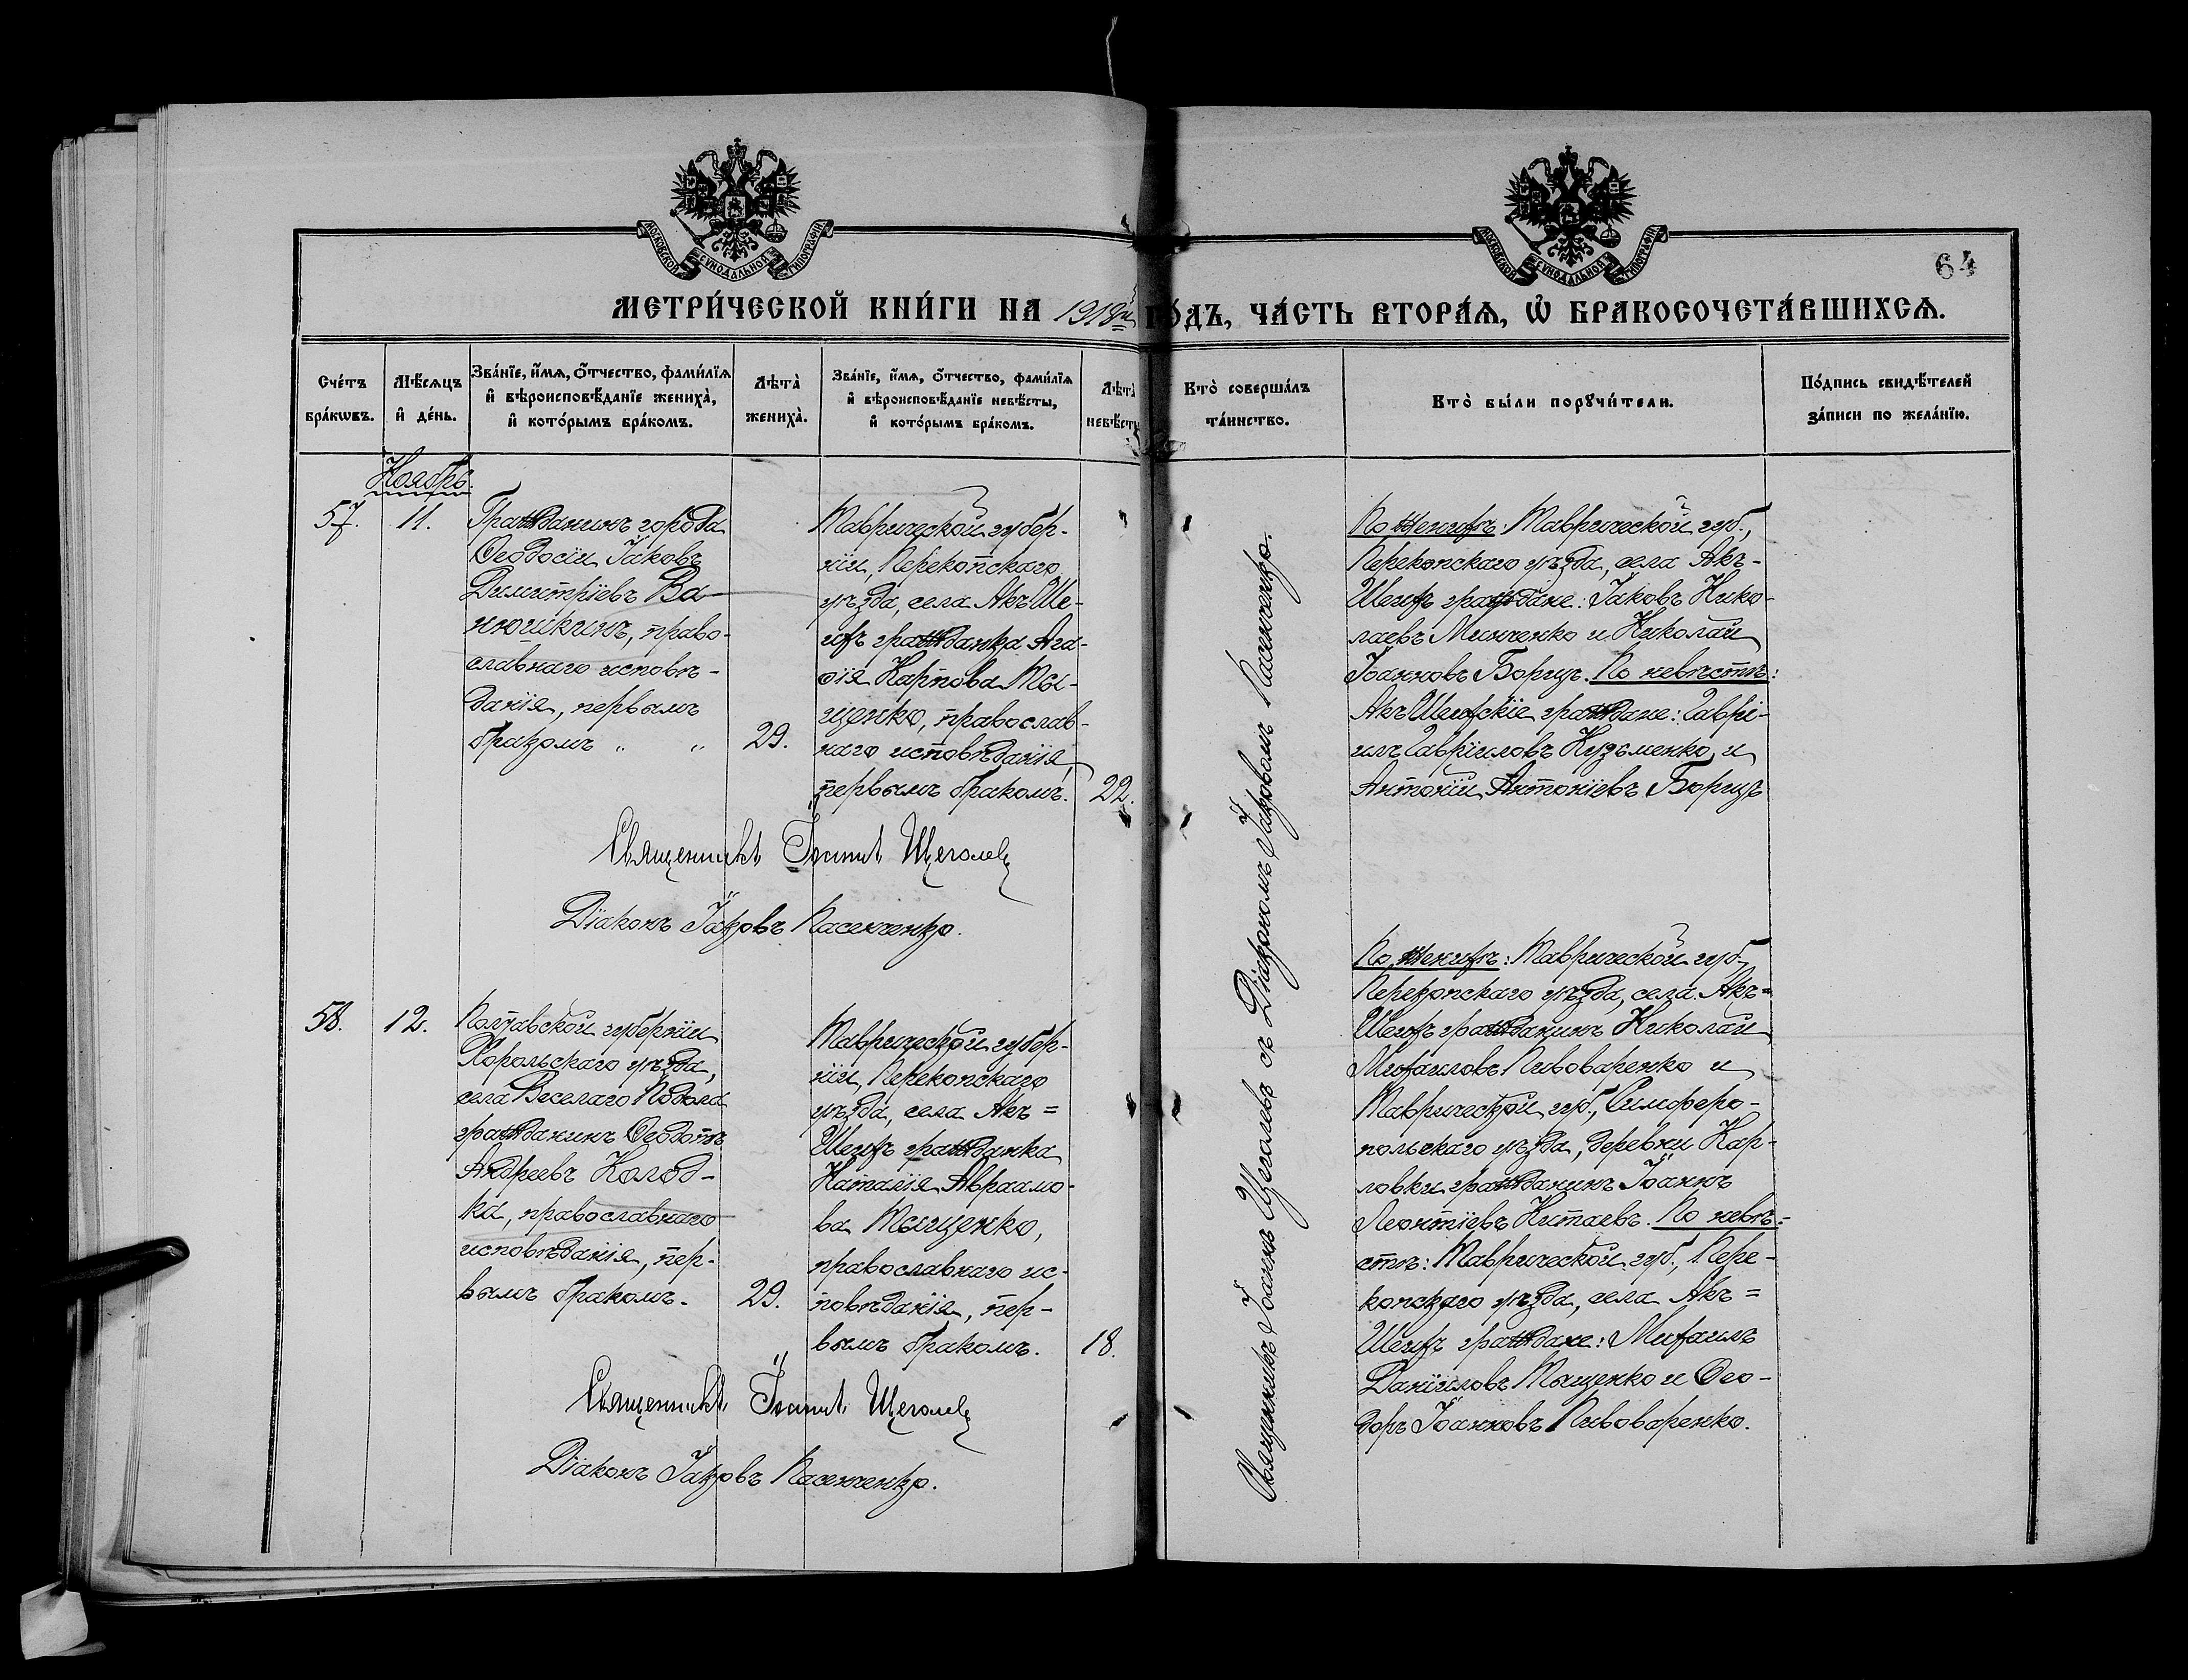 МОСКОВСКОЙ СѴНОДАЛЬНОЙ ТИПОГРАФІИ
МОСКОВСКОЙ СѴНОДАЛЬНОЙ ТИПОГРАФІИ
64
МЕТРИ́ЧЕСКОЙ КНИ́ГИ НА 1918й ГО́ДЪ, ЧА́СТЬ ВТОРА́Я, Ѽ БРАКОСОЧЕТА́ВШИХСѦ.
Сче́тъ
бра́кѡвъ.
Мѣ́сѧцъ
и҆ де́нь.
Зва́нїе, и҆́мѧ, ѻ҆́тчество, фами́лїѧ
и҆ вѣроисповѣ́данїе жениха̀,
и҆ кото́рымъ бра́комъ.
Лѣта̀
жениха̀.
Зва́нїе, и҆́мѧ, ѻ҆́тчество, фами́лїѧ
и҆ вѣроисповѣ́данїе невѣ́сты,
и҆ кото́рымъ бра́комъ.
Лѣта̀
невѣ́сты
Кто̀ соверша́лъ
та́инство.
Кто̀ бы́ли порꙋчи́тели.
По́дпись свидѣ́телей
за́писи по жела́нїю.
Ноябрь.
57.
11.
Гражданинъ города
Ѳеодосіи Іаковъ
Димитріевъ Ва-
нюшкинъ, право-
славнаго исповѣ-
данія, первымъ
бракомъ „ „
29.
Таврической губер-
ніи, Перекопскаго
уѣзда, села Акъ Ше-
ихъ гражданка Ага-
ѳія Карпова Ты-
щенко, православ-
наго исповѣданія,
первымъ бракомъ.
22.
Священникъ Іоаннъ Щеголевъ
Діаконъ Іаковъ Пасенченко.
Священникъ Іоаннъ Щеголевъ съ Діакономъ Іаковомъ Пасенченко.
По женихѣ: Таврической губ.,
Перекопскаго уѣзда, села Акъ-
Шеихъ граждане: Іаковъ Нико-
лаевъ Минченко и Николай
Іоанновъ Борщъ. По невѣстѣ:
Акъ Шеихскіе граждане: Гаврі-
илъ Гавріиловъ Кузьменко и
Антоній Антоніевъ Борщъ
58.
12.
Полтавской губерніи
Хорольскаго уѣзда,
села Веселаго Подола
гражданинъ Ѳеодотъ
Андреевъ Колод-
ка, православнаго
исповѣданія, пер-
вымъ бракомъ.
29.
Таврической губер-
ніи, Перекопскаго
уѣзда, села Акъ=
Шеихъ гражданка
Наталія Авраамо-
ва Тыщенко,
православнаго ис-
повѣданія, пер-
вымъ бракомъ.
18.
Священникъ Іоаннъ Щеголевъ
Діаконъ Іаковъ Пасенченко.
По женихѣ: Таврической губ.
Перекопскаго уѣзда, села Акъ=
Шеихъ гражданинъ Николай
Михаиловъ Пивоваренко и
Таврической губ., Симферо-
польскаго уѣзда, деревни Кар-
ловки гражданинъ Іоаннъ
Леонтіевъ Китаевъ. По невѣ-
стѣ: Таврической губ., Пере-
копскаго уѣзда, села Акъ=
Шеихъ граждане: Михаилъ
Даніиловъ Тыщенко и Ѳео-
доръ Іоанновъ Пивоваренко.